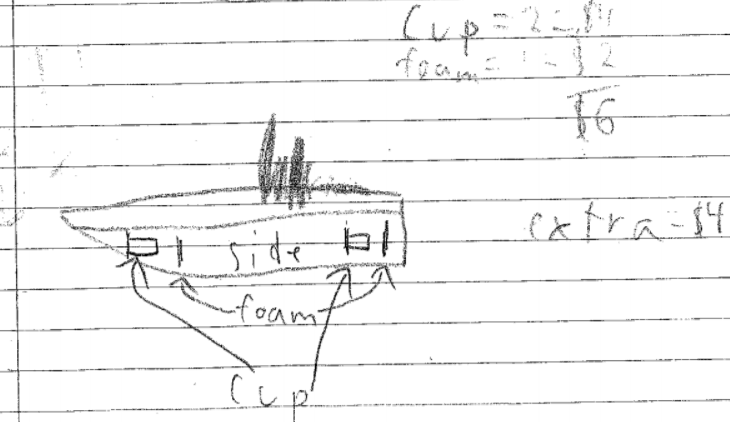 Cup = 2 = $4
foam = 1 = $2
$6
extra = $4
side
foam
Cup